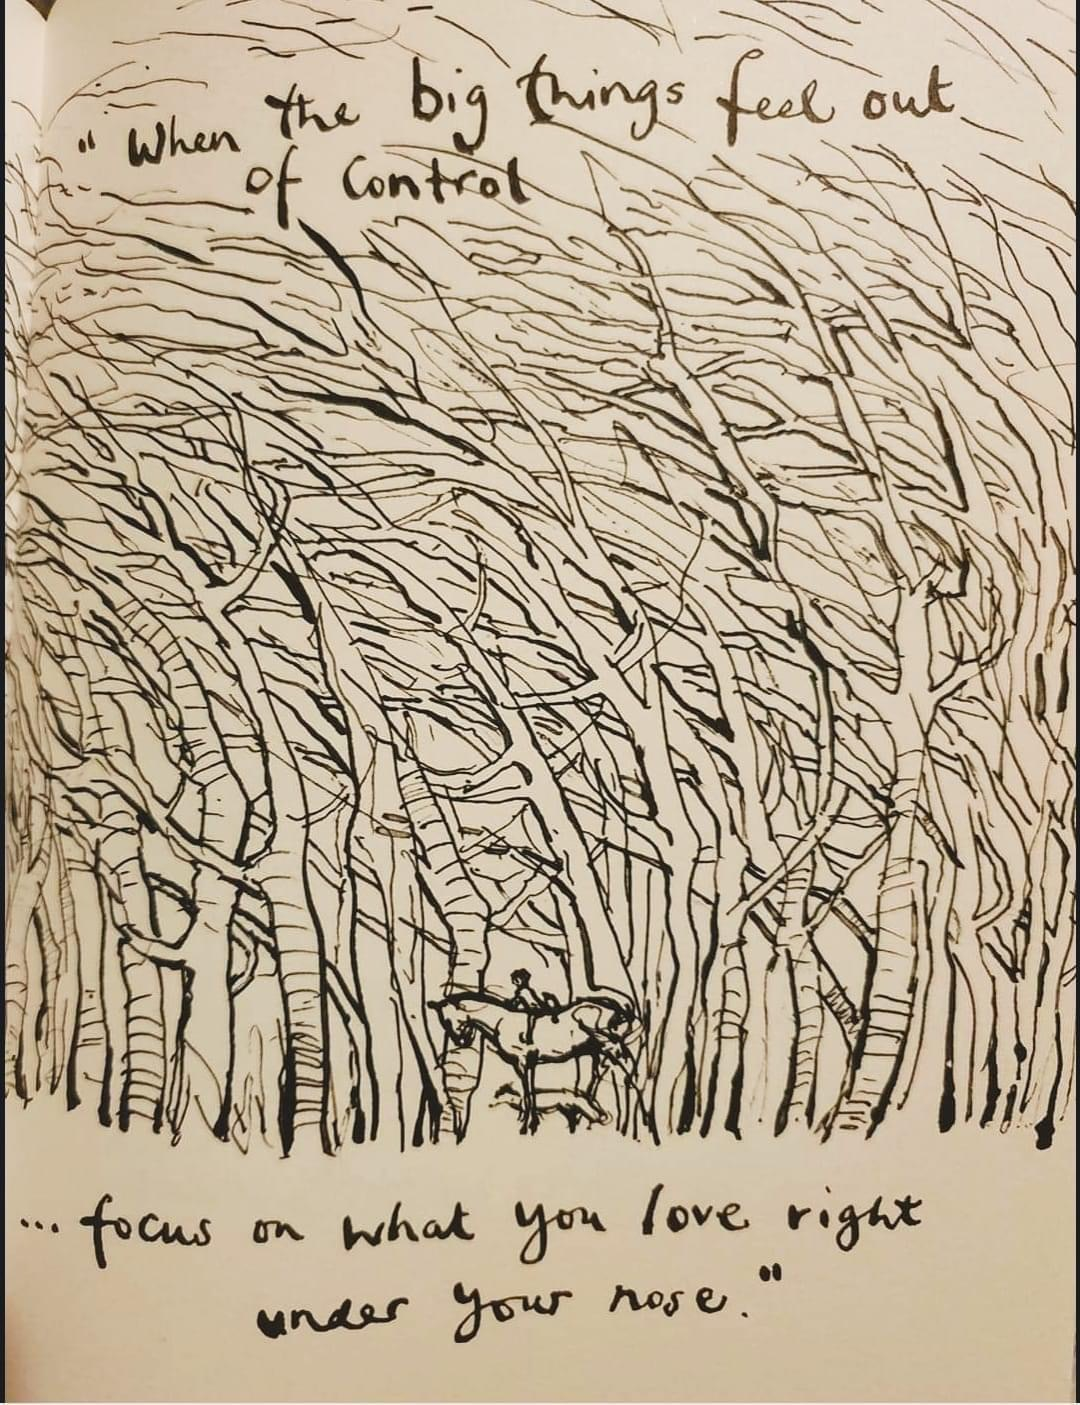 "When the big things feel out
of control
... focus on what you love right
under your nose."